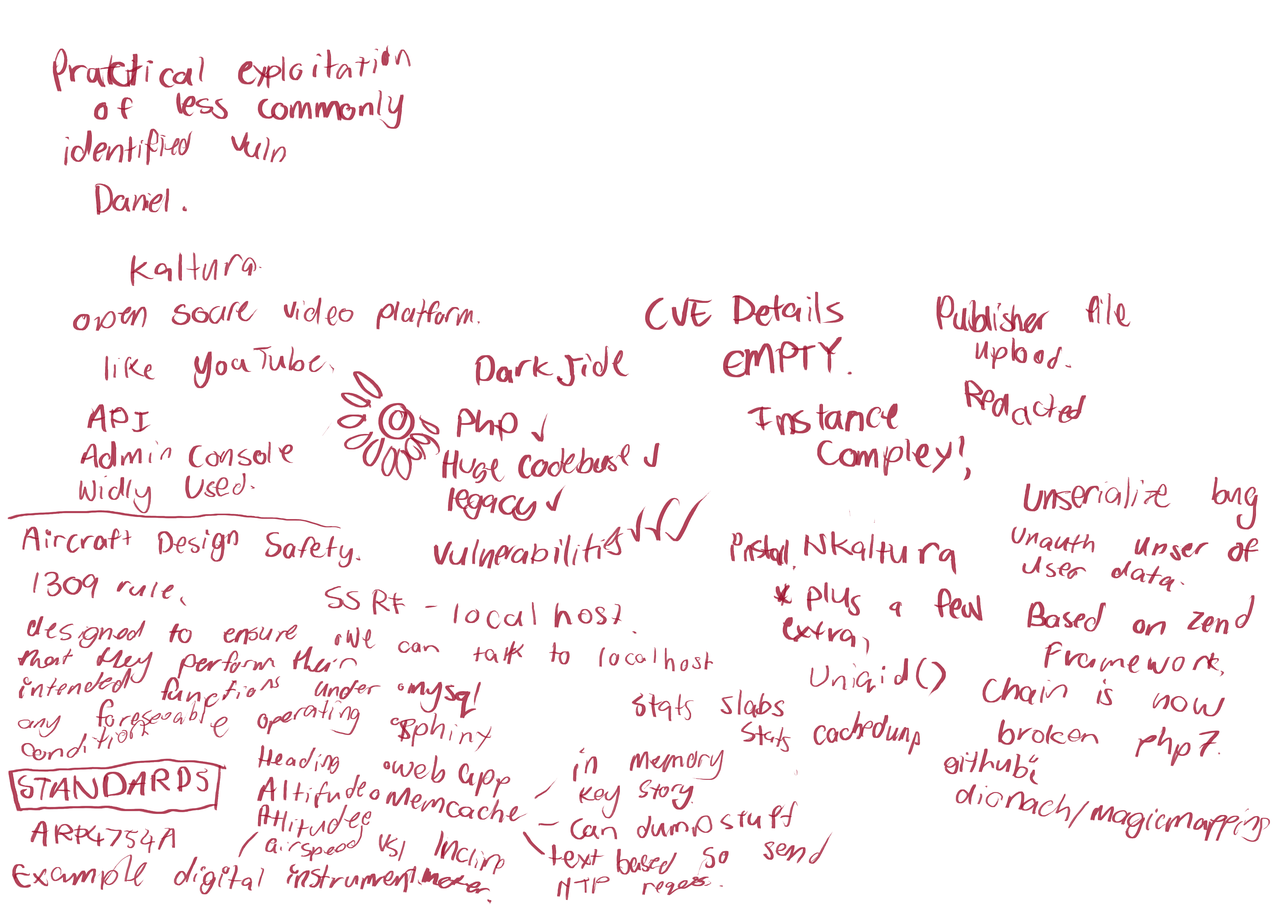 Practical exploitation
of less commonly
identified vuln
Daniel.
Kaltura.
open soure video platform.
like YouTube.
API
Admin Console
Widly Used.
Dark Side
Php ✓
Huge Codebase ✓
legacy ✓
Vulnerabilitis ✓✓✓
SSRF - localhost.
• We can talk to localhost
• mysql
• Sphinx
• web app
• Memcache
- in memory
key story
- Can dump stuff
text based so send
Stats slabs
Stats cachedump
CVE Details
EMPTY.
Instance
Complex!,
Nkaltura
* plus a few
extra,
Uniqid()
Publisher file
upload.
Redacted
Unserialize bug
Unauth unser of
user data.
Based on Zend
Framework,
Chain is now
broken php7.
github:
dionach/magicmapping
Aircraft Design Safety.
1309 rule,
designed to ensure
that they perform their
intended functions under
any foreseeable operating
condition
STANDARDS
ARP4754A
Heading
Altitude
Attitude
airspeed VSI Inclin
Example digital instrument